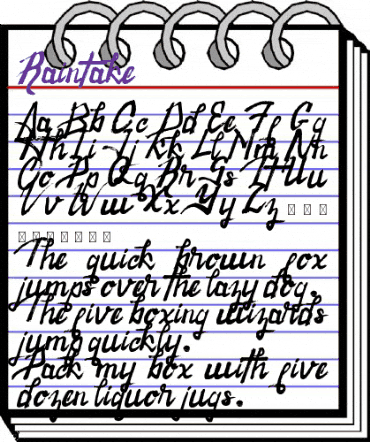 Raintake
Aa Bb Cc Dd Ee Ff Gg
Hh Ii Jj Kk Ll Mm Nn
Oo Pp Qq Rr Ss Tt Uu
Vv Ww Xx Yy Zz
The quick brown fox
jumps over the lazy dog.
The five boxing wizards
jump quickly.
Pack my box with five
dozen liquor jugs.